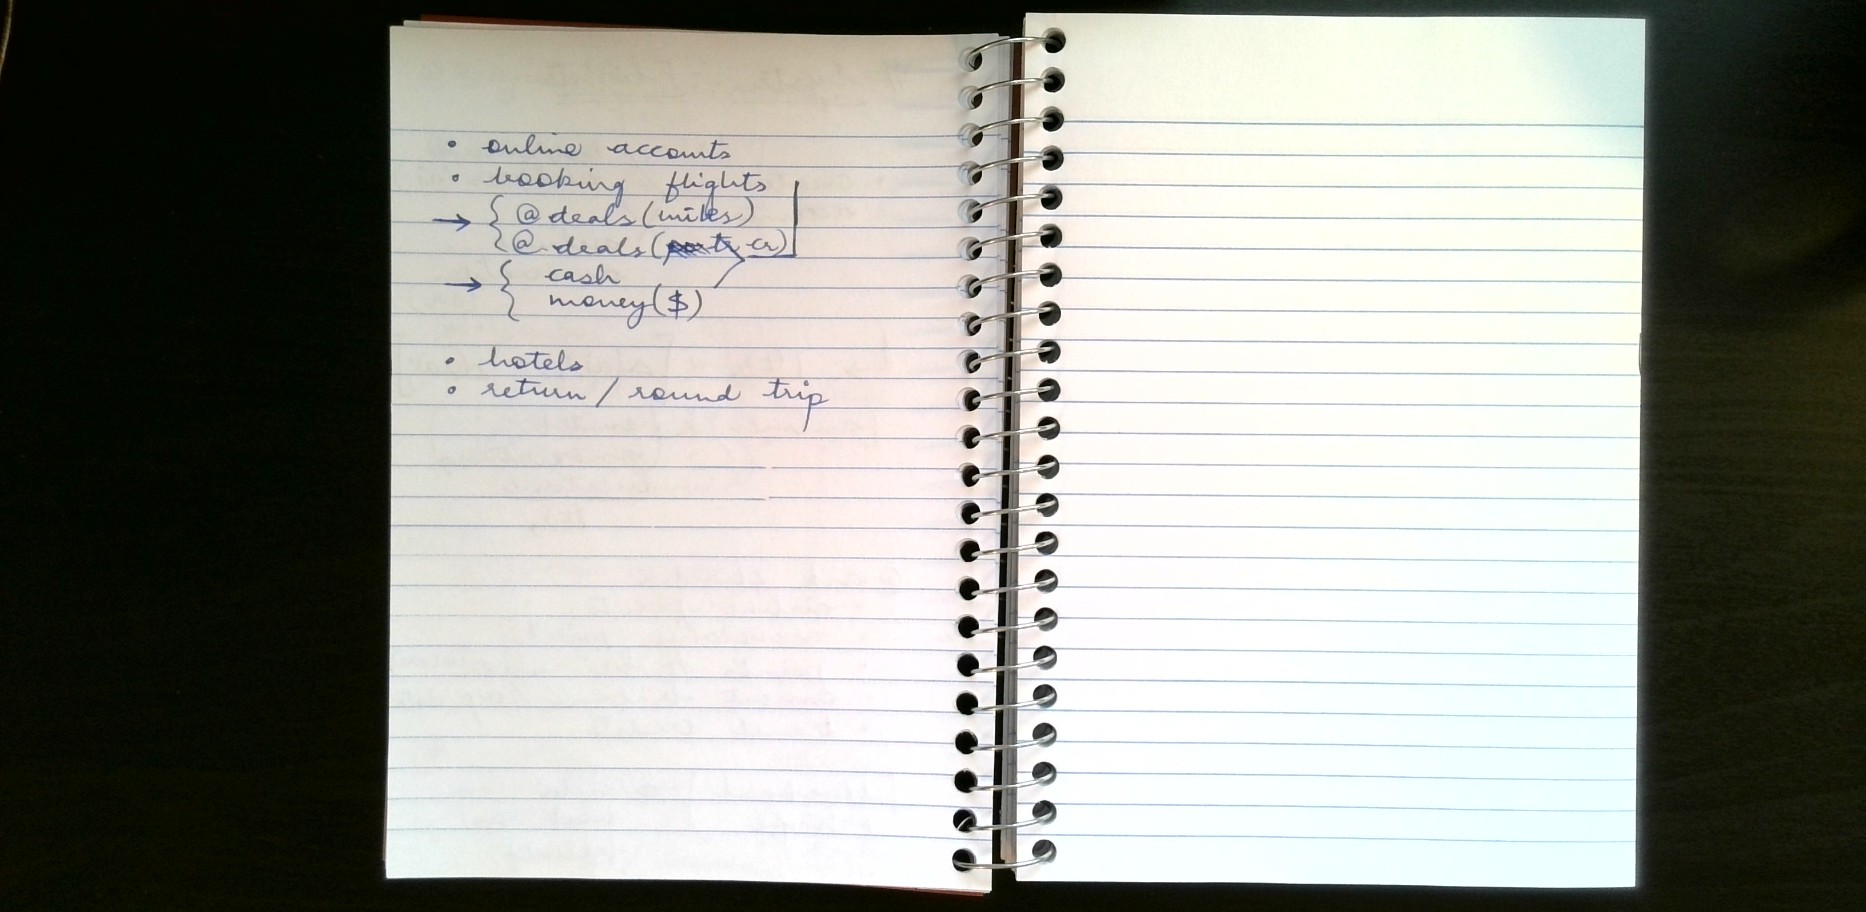 • online accounts
• booking flights
→ { @ deals (miles)
{ @ deals ( cr)
→ { cash
{ money ($)
• hotels
• return / round trip